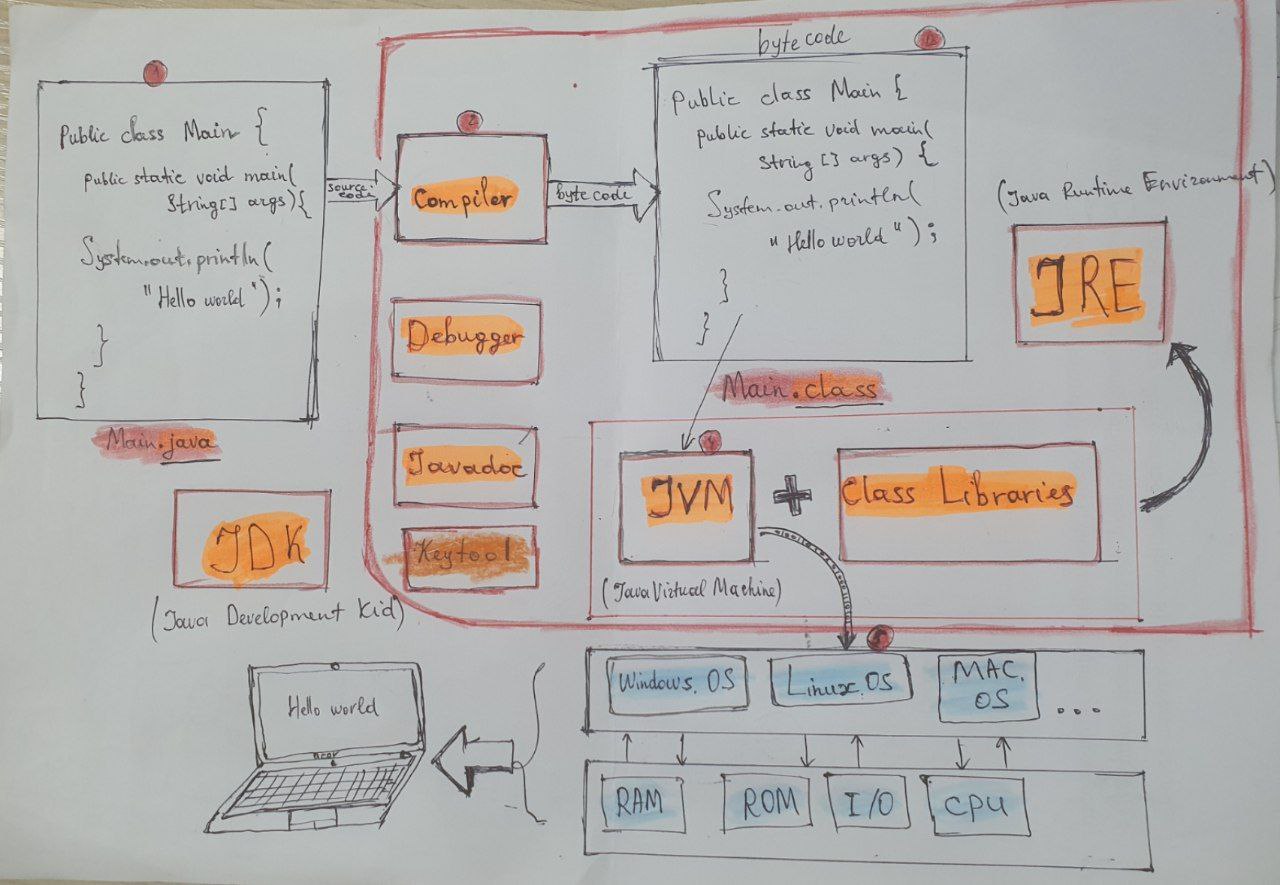 1
Public class Main {
public static void main(
String[] args){
System.out.println(
"Hello world");
}
}
Main.java
source.
code
2
Compiler
byte code
Debugger
Javadoc
Keytool
byte code
Public class Main {
public static void main(
String [] args) {
System.out.println(
"Hello world");
}
}
Main.class
(Java Runtime Environment)
JRE
4
JVM
+
Class Libraries
(Java Virtual Machine)
JDK
(Java Development Kid)
5
Windows. OS
Linux. OS
MAC.
OS
...
RAM
ROM
I/O
CPU
Hello world
acer